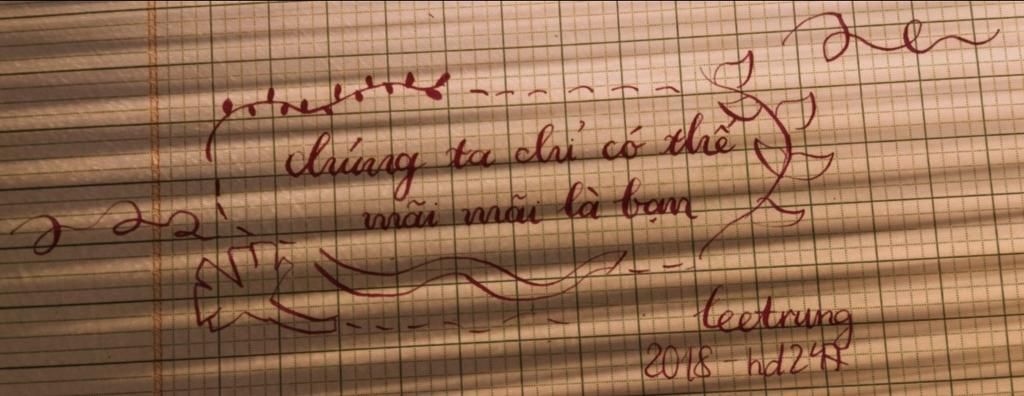 chúng ta chỉ có thể
mãi mãi là bạn
leetrung
2018 - hd247